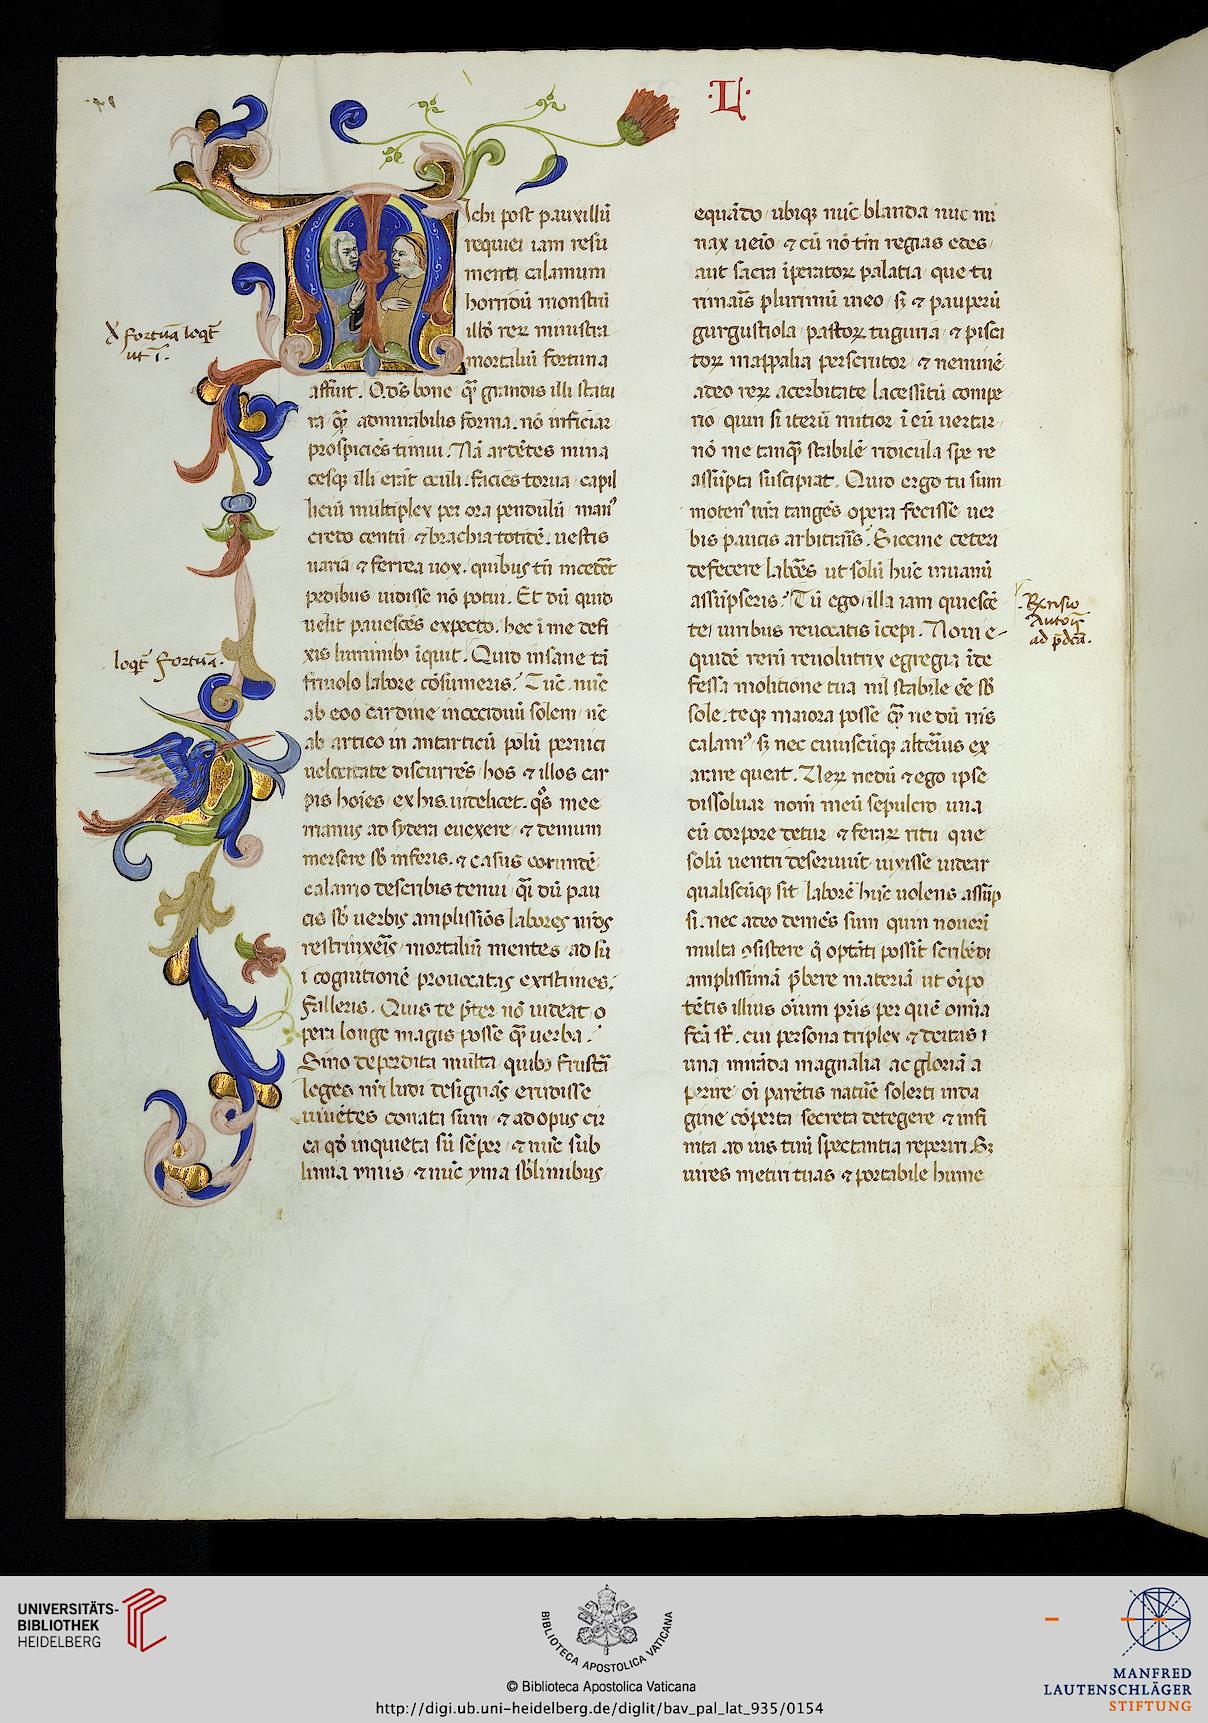 ·L·
Michi post pauxillũ
requiei iam resũ
menti calamum
horridũ monstrũ
illð reꝝ ministra
mortaliũ fortuna
affuit. O dš bone qᷓ grandis illi statu
ra qᷓ admirabilis forma. nõ inficiar
prospiciẽs timui. Nã ardẽtes mina
cesqꝫ illi erãt oculi. facies torua capil
liciũ multiplex per ora pendulũ man⁹
credo centũ ⁊ brachia totidẽ. uestis
uaria ⁊ ferrea uox. quibus tñ incedẽt
pedibus uidisse nõ potui. Et dũ quid
uelit pauescẽs expecto. hec ĩ me defi
xis luminib⁹ ĩquit. Quid insane tã
friuolo labore cõsumeris? Tũc nũc
ab eoo cardine in occiduũ solem nũc
ab artico in antarticũ polũ pernici
uelocitate discurrẽs hos ⁊ illos cir
pis hoĩes ex his uidelicet. qõs mee
manus ad sydera euexere ⁊ demum
mersere sb̃ inferis. ⁊ casus eorundẽ
calamo describis tenui qᷓi dũ pau
cis sb̃ uerbis amplissiõs labores nr̃os
restrinxeĩs mortaliũ mentes ad sũ
i cognitionẽ prouocatas existimes.
Falleris. Quis te p̃ter nõ uideat o
pera longe magis posse qᷓ uerba?
Sino deperdita multa quib⁹ frustã
leges nr̃i ludi designãs erudisse
uiuẽtes conati sum ⁊ ad opus cir
ca qð inquieta sũ sẽper ⁊ nũc sub
limia ymis ⁊ nũc yma sb̃limibus
equãdo ubiqꝫ nũc blanda nũc mi
nax ueĩo ⁊ cũ nõ tñ regias edes
aut sacra ĩperatoꝝ palatia que tu
rimaĩs plurimũ ineo sꝫ ⁊ pauperũ
gurgustiola pastoꝝ tuguria ⁊ pisca
toꝝ mappalia perscrutor ⁊ neminẽ
adeo reꝝ acerbitate lacessitũ compe
rio quin si iterũ mitior ĩ eũ uertar
nõ me tanqᷓ stabilẽ ridicula spe re
assũpta suscipiat. Quid ergo tu sum
moten⁹ nr̃a tangẽs opera fecisse uer
bis paucis arbitraĩs? Siccine cetera
defecere labõrs ut solũ hũc inuanũ
assũpseris? Tũ ego illa iam quiescẽ
te uiribus reuocatis ĩcepi. Noui e
quidẽ rerũ reuolutrix egregia ĩde
fessa molitione tua nil stabile eẽ sb̃
sole. teqꝫ maiora posse qᷓ ne dũ m̃s
calam⁹ sꝫ nec cuiuscũqꝫ alteĩus ex
arare queat. Neꝝ nedũ ⁊ ego ipse
dissoluar nom̃ meũ sepulcro una
cũ corpore detur ⁊ feraꝝ ritu que
solũ uentri deseruiũt uixisse uidear
qualiscũqꝫ sit laborẽ hũc uolens assũp
si. nec adeo demẽs sum quin nouerĩ
multa ꝯsistere q̃ optãti possĩt scribẽdi
amplissimã p̃bere materiã ut oĩpo
tẽtis illius oĩum pr̃is per quẽ omĩa
fc̃a st̃. cui persona triplex ⁊ deitas ĩ
una mirãda magnalia ac gloriã a
perire oĩ parẽtis natũe solerti inda
gine cõperta secreta detegere ⁊ infi
nita ad ius tuũ spectantia reperiri. Sꝫ
uires metiri tuas ⁊ portabile hume
loqt̃ Fortũa.
Rẽnsio
Autoris
ad p̃dc̃a.
UNIVERSITÄTS-
BIBLIOTHEK
HEIDELBERG
BIBLIOTECA APOSTOLICA VATICANA
© Biblioteca Apostolica Vaticana
http://digi.ub.uni-heidelberg.de/diglit/bav_pal_lat_935/0154
MANFRED
LAUTENSCHLÄGER
STIFTUNG